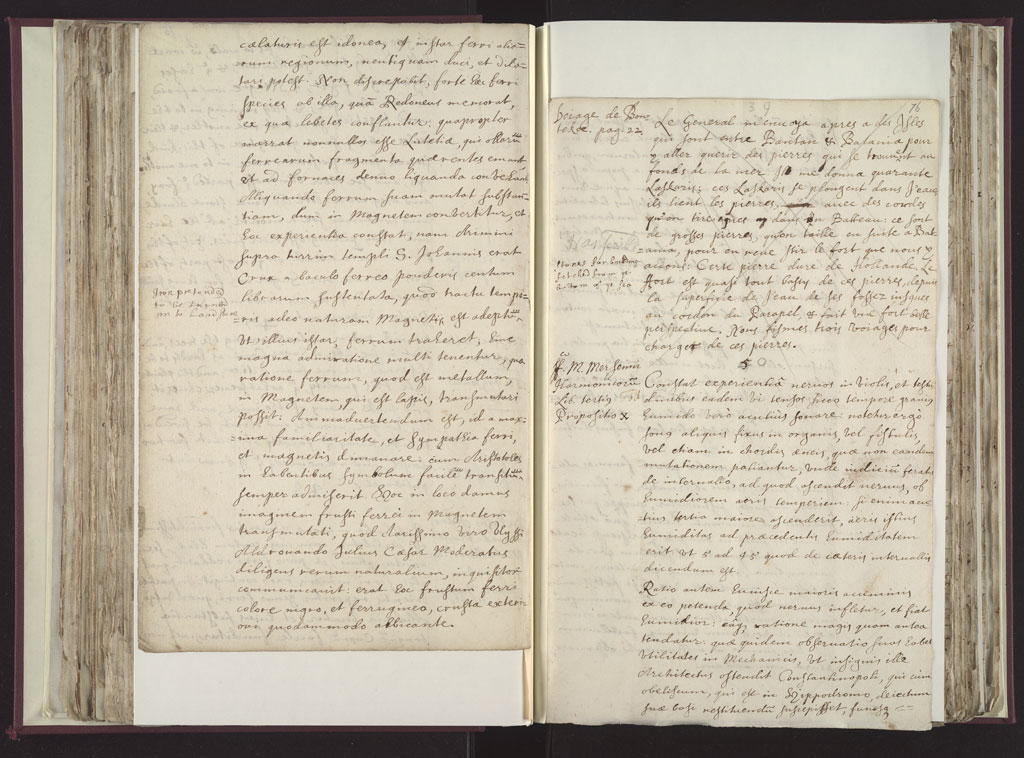 cælaturis est idonea, et instar ferri alia=
rum regionum, neutiquam duci, et dila=
tari potest. Non discrepabit, forte hæc ferri
species ab illa, quā Redoneus memorat,
ex qua lebetes conflantur: quapropter
narrat nonnullos esse Lutetiæ, qui ollarum
ferrearum fragmenta quærentes emant
et ad fornaces denuo liquanda convehant
Aliquando ferrum suam mutat substan
tiam, dum in Magnetem convertitur, et
hoc experientia constat, nam Arimini
supra turrim templi S. Johannis erat
Crux a baculo ferreo ponderis centum
librarum sustentata, quod tractu tempo
=ris adeo naturam Magnetis est adeptū
Ut illius instar, ferrum traheret; hinc
magna admiratione multi tenentur, qua
ratione ferrum, quod est metallum,
in Magnetem, qui est lapis, transmutari
possit: Animadvertendum est, id a maxi
=ma familiaritate, et sympathia ferri,
et magnetis dimanare: cum Aristoteles
in habentibus symbolum facilem transitum
semper admiserit. Hoc in loco damus
imaginem frusti ferrei in Magnetem
transmutati, quod clarissimo viro Ulyssi
Aldrovando Julius Cæsar Moderatus
diligens rerum naturalium, inquisitor
communicavit: erat hoc frustum ferri
colore nigro, et ferrugineo, crusta exteri
ori quodammodo albicante.
Iron pretended
to be turned
into Loadstone
39
76
Voiage de Bon
tekoe. pag: 22.
Le General m'envoya apres a des Isles
qui sont entre Bantam & Batavia pour
y aller querir des pierres qui se trouvent au
fonds de la mer. Il me donna quarante
Laskaris; ces Laskaris se plongent dans l'eau
ils lient les pierres, avec des cordes
qu'on tire apres dans un Batteau: ce sont
de grosses pierres, qu'on taille en suite a Bat
avia, pour en revetir le fort que nous y
avions. Cette pierre dure de Hollande. Le
fort est quasi tout basty de ces pierres, depuis
la superficie de l'eau de ses fossez iusques
au cordon du Parapet, & fait une fort belle
perspective. Nous fismes trois voiages pour
charger de ces pierres.
Stones for building
fetched from ye
bottom of ye sea
50
ff. M. Mersenni
Harmonicorū
Lib. tertij
Propositio X
Constat experientiâ nervos in violis, et testu
dinibus eadem vi tensos sicco tempore gravius
humido verò acutius sonare: notetur ergo
sonus aliquis fixus in organis, vel fistulis,
vel etiam in chordis æneis, quæ non eandem
mutationem patiantur, unde iudicium feratur
de intervallo, ad quod ascendit nervus, ob
humidiorem aeris temperiem: si enim acu
=tius tertia maiore ascenderit, aeris istius
humiditas ad præcedentis humiditatem
erit ut 5 ad 4; quod de cæteris intervallis
dicendum est.
Ratio autem huiusce maioris acuminis
ex eo petenda, quod nervus infletur, et fiat
humidior: eâq; ratione magis quam antea
tendatur: quæ quidem observatio suas habet
Utilitates in Mechanicis, Ut insignis ille
Architectus ostendit Constantinopoli, qui cum
obeliscum, qui est in Hippodromo, deiectum
suæ basi restituendū suscepisset, funesq